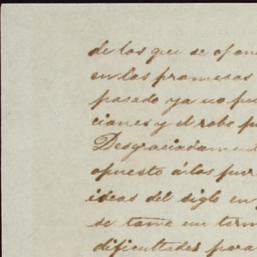 de los que se afan
en las promesas
pasado ya no pu
ciones y el robo p
Desgraciadamen
opuesto á los pur
ideas del siglo en
se tome un term
dificultades para